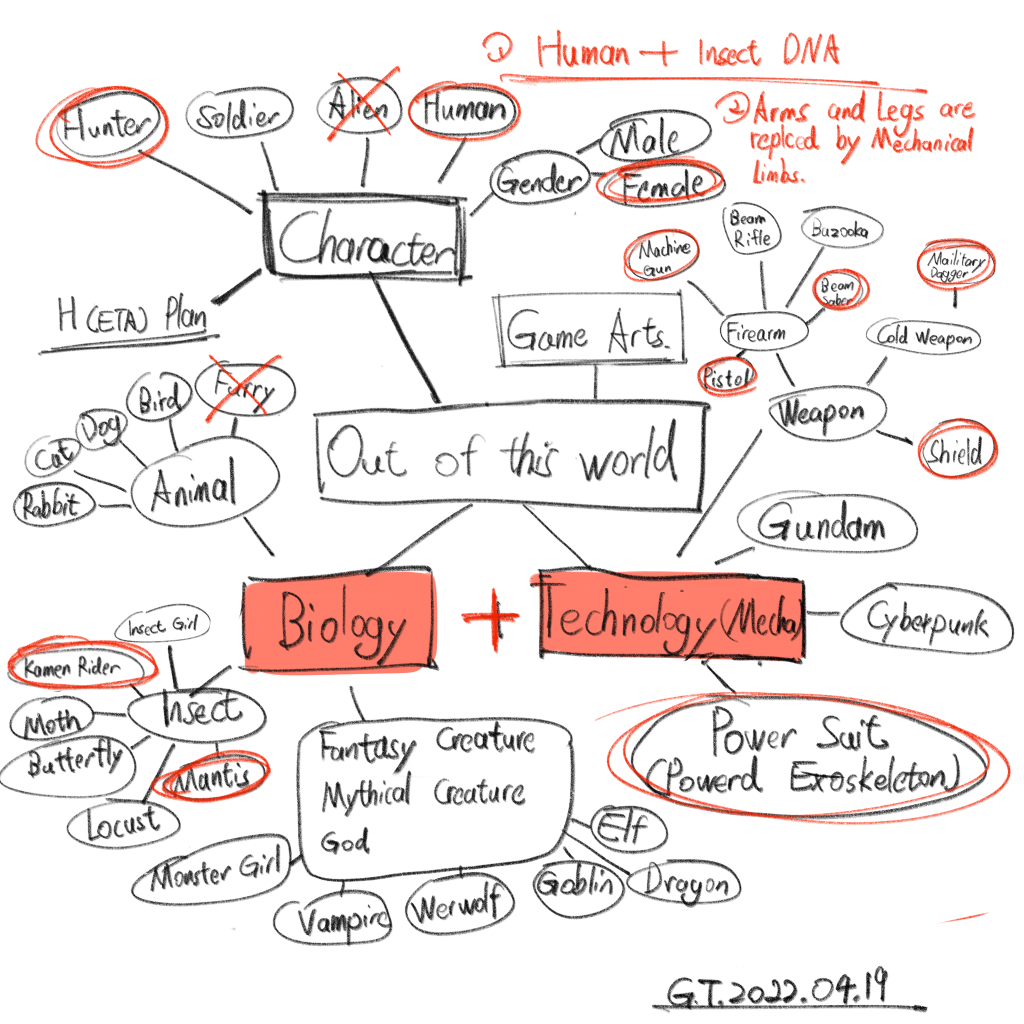 ① Human + Insect DNA
② Arms and Legs are
replced by Mechanical
Limbs.
Hunter
Soldier
Alien
Human
Gender
Male
Female
Character
H (ETA) Plan
Game Arts.
Machine
Gun
Beam
Rifle
Buzooka
Beam
Saber
Mailitary
Dagger
Firearm
Cold Weapon
Pistol
Weapon
Shield
Furry
Bird
Dog
Cat
Rabbit
Animal
Out of this world
Gundam
Biology
+
Technology (Mecha)
Cyberpunk
Insect Girl
Kamen Rider
Moth
Insect
Butterfly
Mantis
Locust
Fantasy Creature
Mythical Creature
God
Power Suit
(Powerd Exoskeleton)
Monster Girl
Vampire
Werwolf
Goblin
Elf
Dragon
G.T.2022.04.19